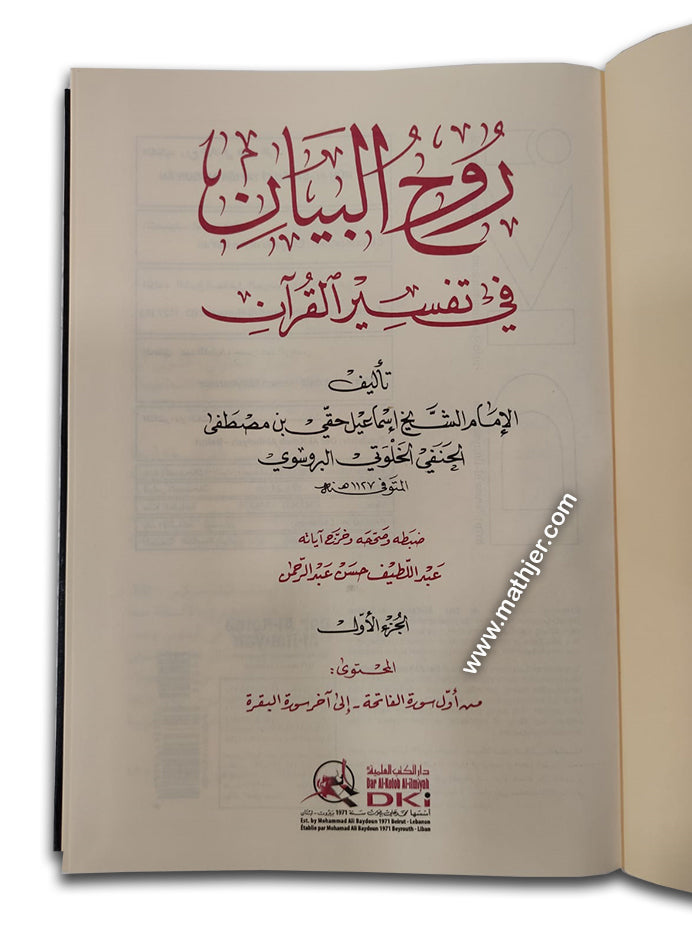 رُوحُ البَيَانِ
في تفسير القُرآنِ
تأليف
الإمام الشَّيخ إسماعيل حقي بن مصطفى
الحنفي الخلوتي البروسوي
المتوفى سنة ١١٢٧ هـ
ضبطه وصححه وخرّج آياته
عبد اللطيف حسن عبد الرحمن
الجزء الأوّل
المحتوى:
من أوّل سورة الفاتحة - إلى آخر سورة البقرة
www.mathjer.com
دار الكتب العلمية
Dar Al-Kotob Al-ilmiyah
DKi
أسسها محمد علي بيضون سنة 1971 بيروت - لبنان
Est. by Mohammad Ali Baydoun 1971 Beirut - Lebanon
Établie par Mohamad Ali Baydoun 1971 Beyrouth - Liban